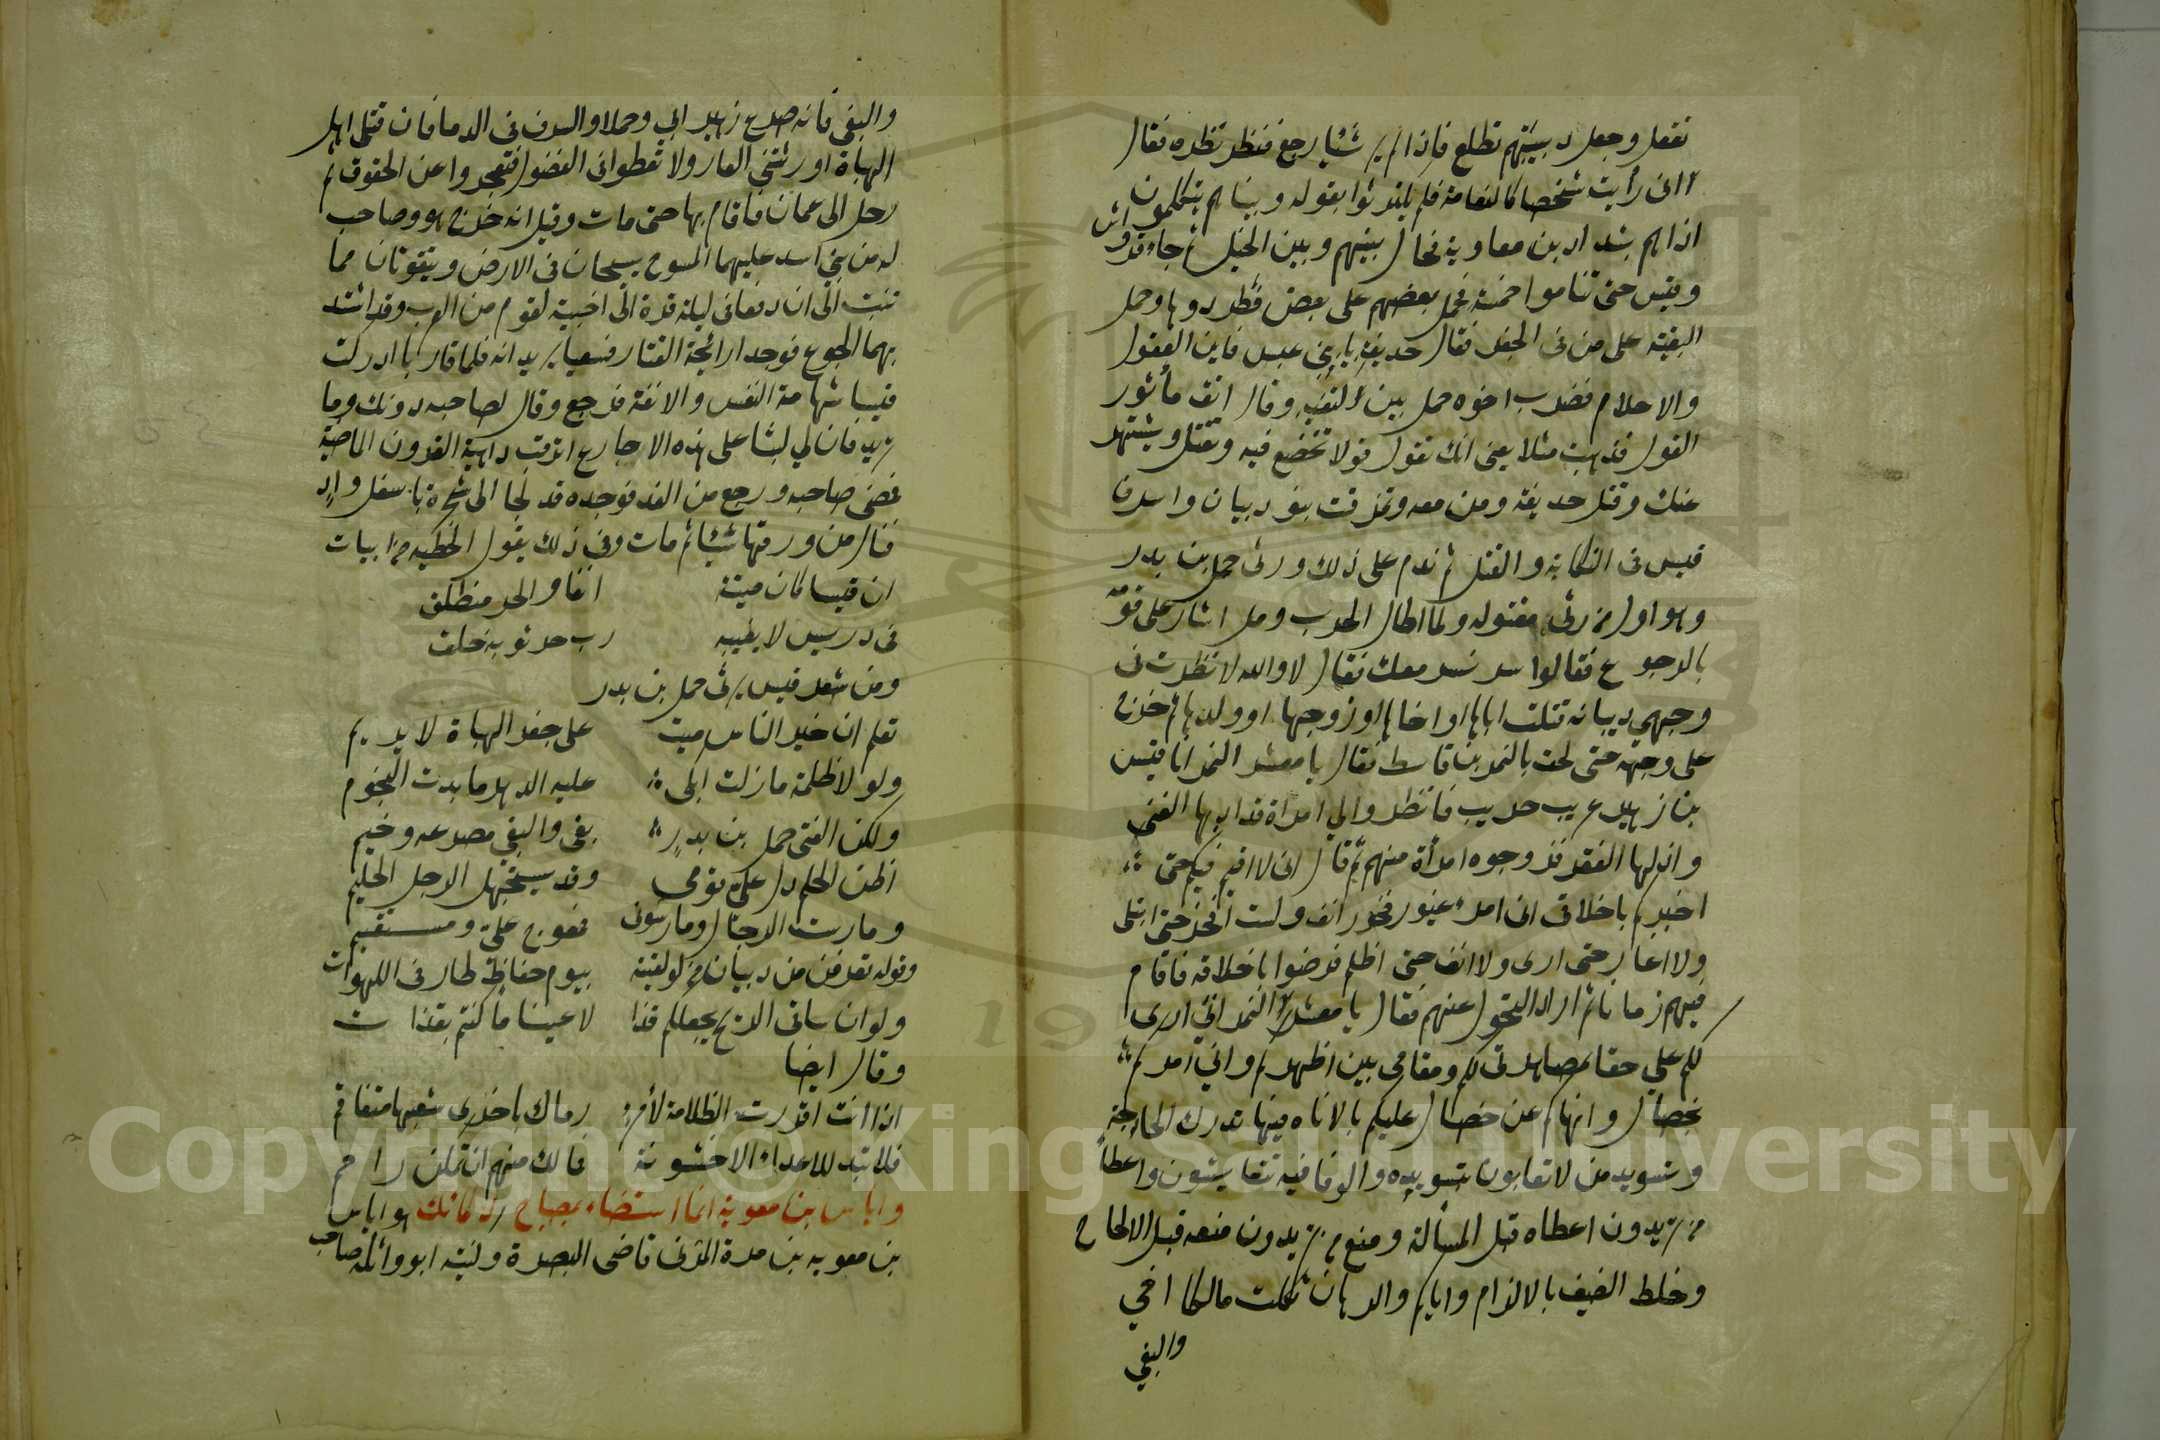 نفعل وجعل دبيئتهم تطلع فاذا لم ير شئيا رجع فنظر نظره فقال
انى رأيت شخصا كالنعامة فلم يلتفتوا بقوله وبينا هم يتكلمون
اذا هم بشداد بن معاوية فحال بينهم وبين الخيل ثم جاء قرواش
وقيس حتى تتاموا خمسة فحمل بعضهم على بعض فطردوها وحمل
البقية على من فى الجفر فقال حديفة يا بنى عبس فاين العقول
والاحلام فضرب اخوه حمل بين كتفيه وقال اتق مأثور
القول فذهبت مثلا يعنى انك تقول قولا تخضع فيه وتقتل ويشتهر
عنك وقتل حديفة ومن معه وتمزقت بنو دبيان واسرف
قيس فى النكاية والقتل ثم ندم على ذلك ورثى حمل بن بدر
وهو اول من رثى مقتوله ولما اطال الحرب ومل اشار على قومه
بالرجوع فقالوا سر نسر معك فقال لا والله لا نظرت فى
وجهي دبيانه قتلت اباها او اخاها او زوجها او ولدها ثم خرج
على وجهه حتى لحق بالنمر بن قاسط فقال يا معشر النمر انا قيس
بن زهير غريب حريب فانظروا لي امراة قد ادبها الغنى
واذلها الفقر فزوجوه امرأة منهم ثم قال انى لا اقيم فيكم حتى
اخبركم باخلاقى انى امرء غيور فخور انف ولست افخر حتى ابتلى
ولا اغار حتى ارى ولا انف حتى اظلم فرضوا باخلاقه فاقام
فيهم زمانا ثم اراد التحول عنهم فقال يا معشر النمر انى ارى
لكم علي حقا بمصاهرتى لكم ومقامى بين اظهركم واني آمركم
بخصال وانهاكم عن خصال عليكم بالاناه فبها تدرك الحاجة
وتسويد من لا تعابون بتسويده والوفا فبه تتعايشون واعطاء
من تريدون اعطاه قبل المسألة ومنع من تريدون منعه قبل الالحاح
وخلط الضيف بالالزام واياكم والرهان ثكلت مالكا اخي
والبغي
والبغى فانه صرع زهير ابي وحملا والسرف فى الدما فان قتلى اهل
الهباة اورثتنى العار ولا تعطوا فى الفضول فتعجزوا عن الحقوق ثم
رحل الى عمان فاقام بها حتى مات وقيل انه خرج هو وصاحب
له من بنى اسد عليهما المسوح يسيحان فى الارض ويتقوتان مما
تنبت الى ان دفعا فى ليلة قرة الى اخبية لقوم من العرب وقد اشتد
بهما الجوع فوجدا رائحة القتار فسعيا يريدانه فلما قاربا ادركت
قيسا شهامة النفس والانفة فرجع وقال لصاحبه دونك وما
تريد فان لي لبثا على هذه الاجارع اترقب داهية القرون الماضية
فمضى صاحبه ورجع من الغد فوجده قد لجا الى شجرة باسفل واد
فنال من ورقها شيئا ثم مات وفى ذلك يقول الحطيه من ابيات
ان قيسا كان ميتة انفا والحر منطلق
فى دريس لا يغيبه رب حر ثوبه خلق
ومن شعر قيس يرثى حمل بن بدر
تعلم ان خير الناس ميت على جفر الهباة لا يريم
ولولا ظلمة ما زلت ابكى عليه الدهر ما بدت النجوم
ولكن الفتى حمل بن بدر بغى والبغى مصرعه وخيم
اظن الحلم دل على قومى وقد يستجهل الرجل الحليم
ومارست الرجال ومارسونى فمعوج على ومستقيم
وقوله تعرفن من دبيان من لو لقيته بيوم حفاظ طار فى اللهوات
ولو ان سافى الريح يجعلكم قذا لاعيننا ما كنتم بقذات
وقال ايضا
اذا انت اقررت الظلامة لأمرء رماك باخرى شعبها متفاقم
فلا تبد للاعداء الا خشونة فمالك منهم ان تمكن راحم
واياس بن معوية انما استضاء بمصباح ذكائك هو اياس
بن معويه بن مرة المزنى قاضى البصرة وكنيته ابو واثلة صاحب
Copyright © King Saud University